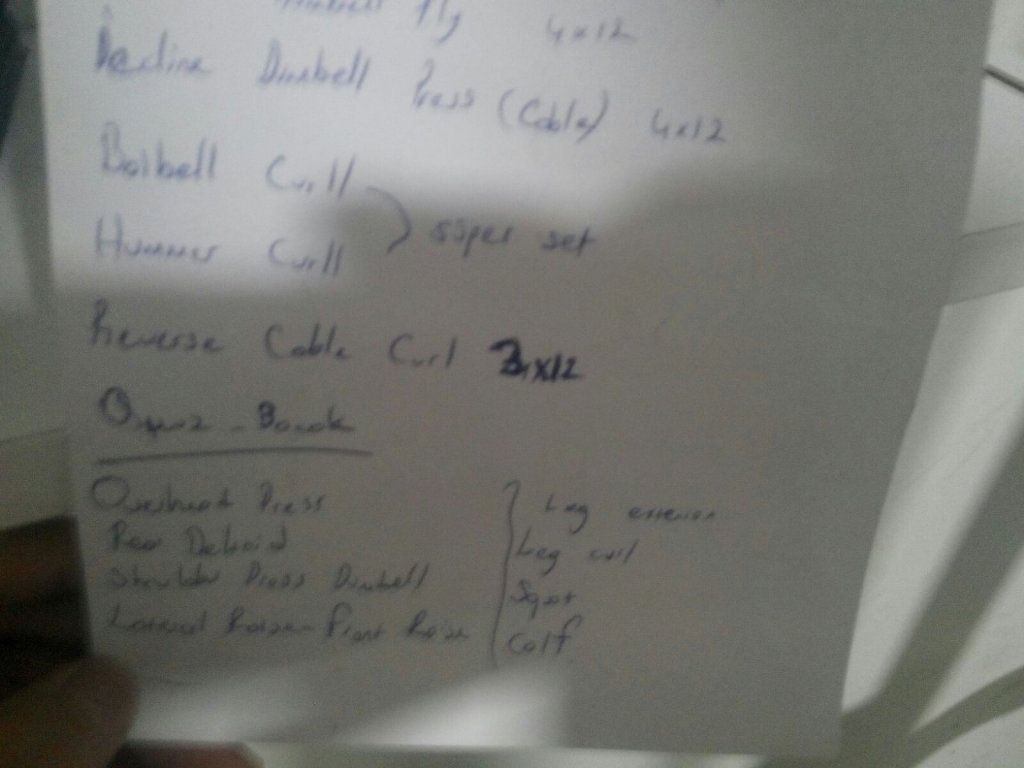 Fly 4x12
Decline Dumbell Press (Cable) 4x12
Barbell Curll
Hummer Curll
süper set
Reverse Cable Curl 3x12
Omuz - Bacak
Overhead Press
Rear Deltoid
Shoulder Press Dumbell
Lateral Raise - Front Raise
Leg extension
Leg curl
Squat
Calf